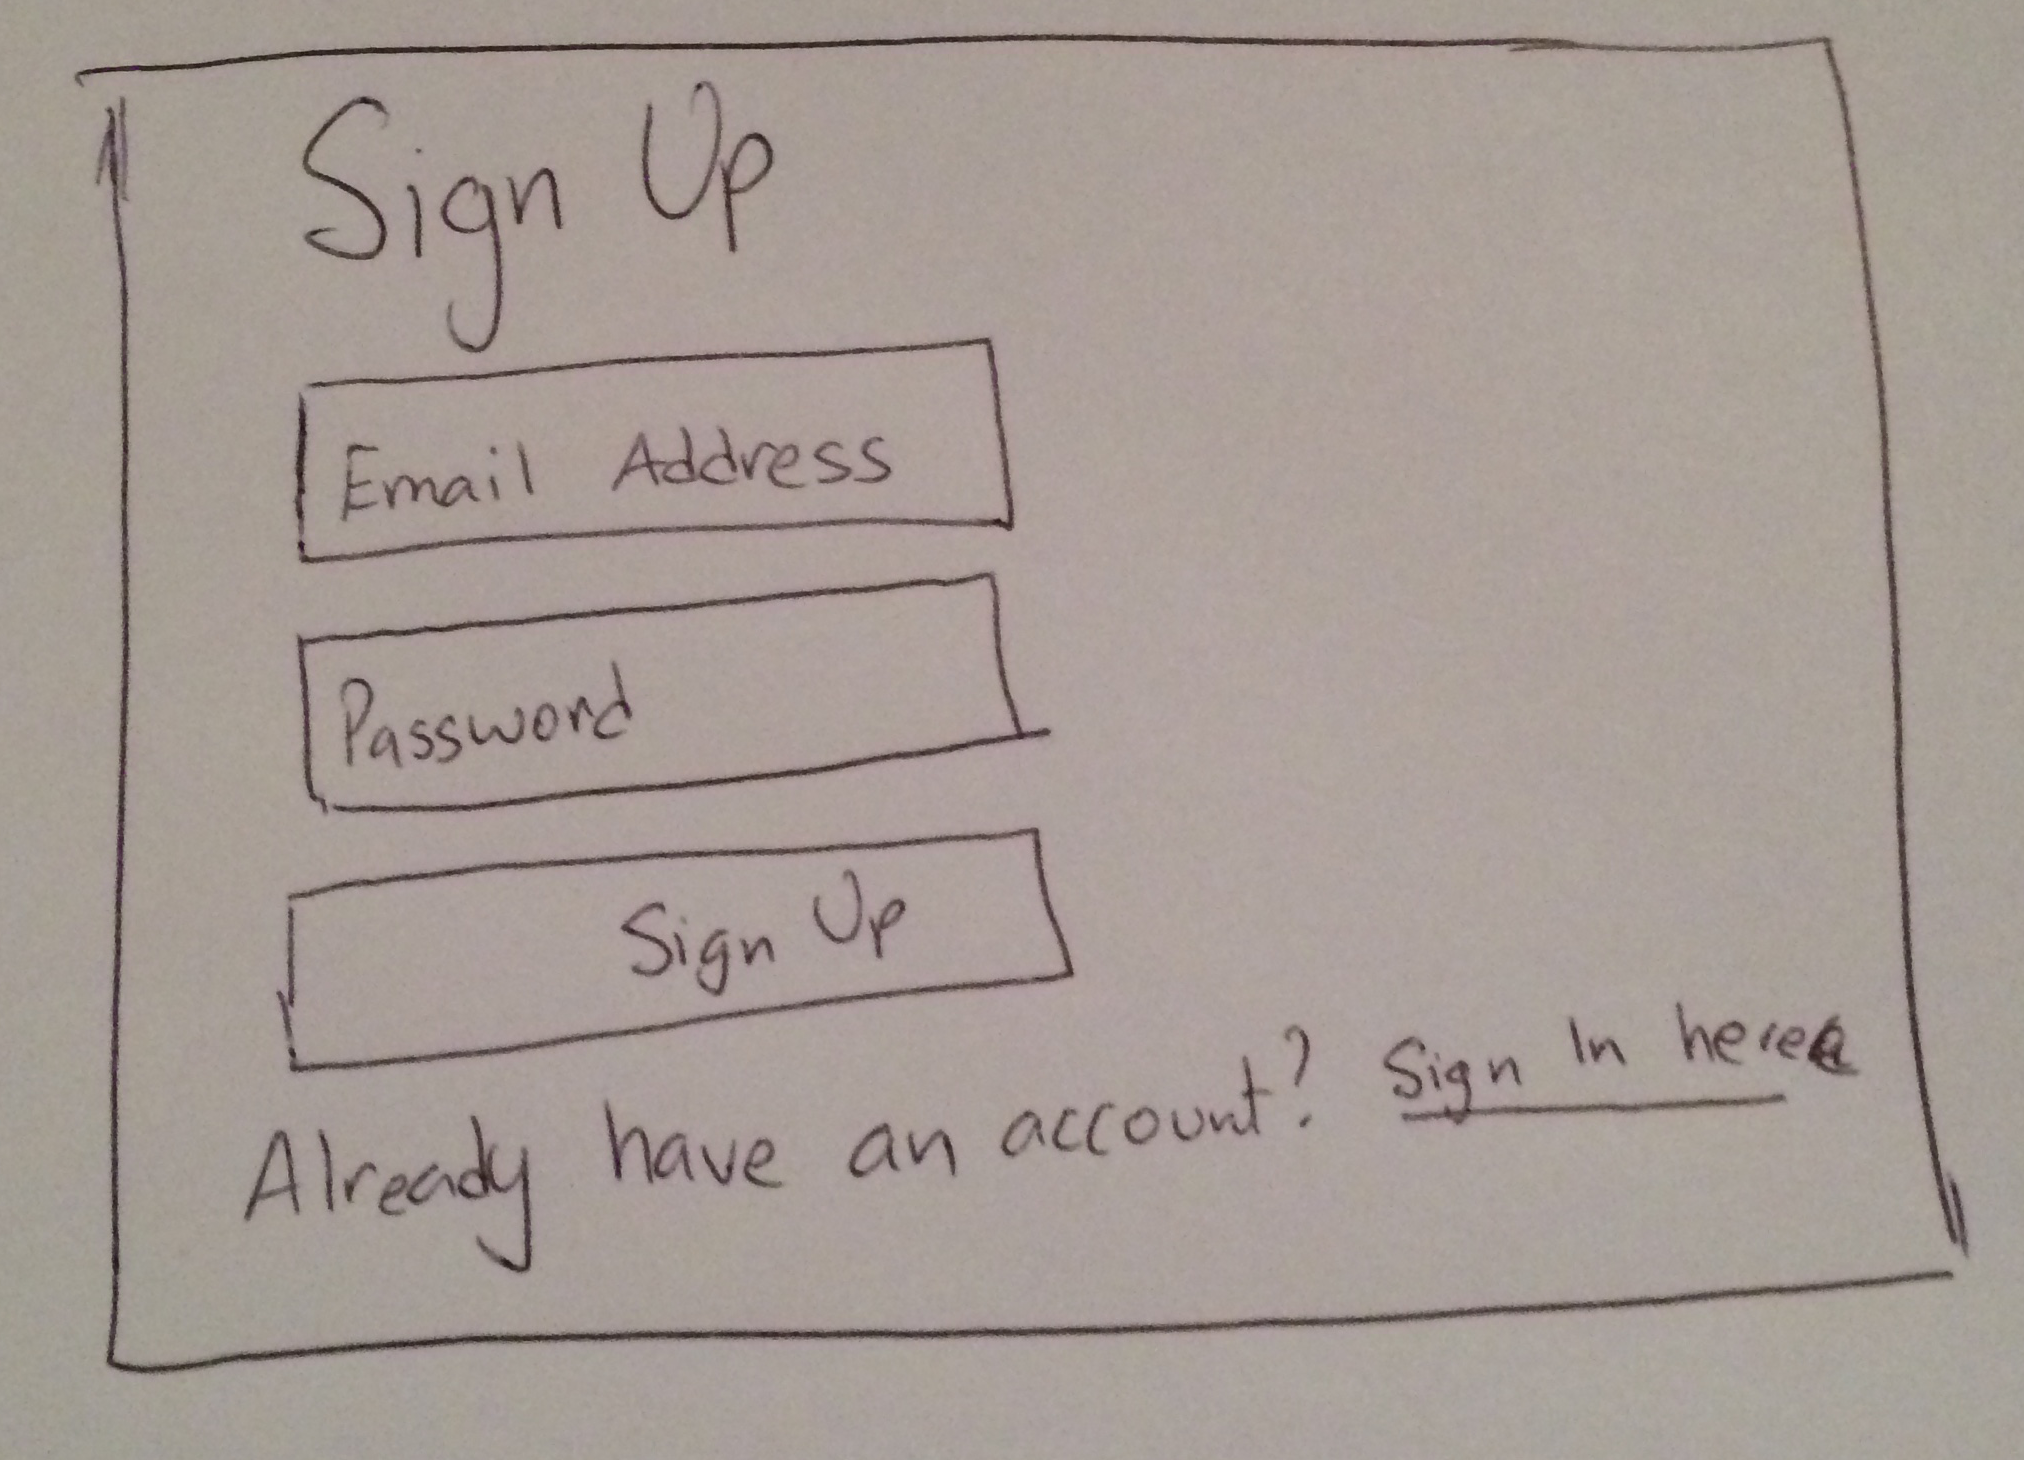 Sign Up
Email Address
Password
Sign Up
Already have an account? Sign In here